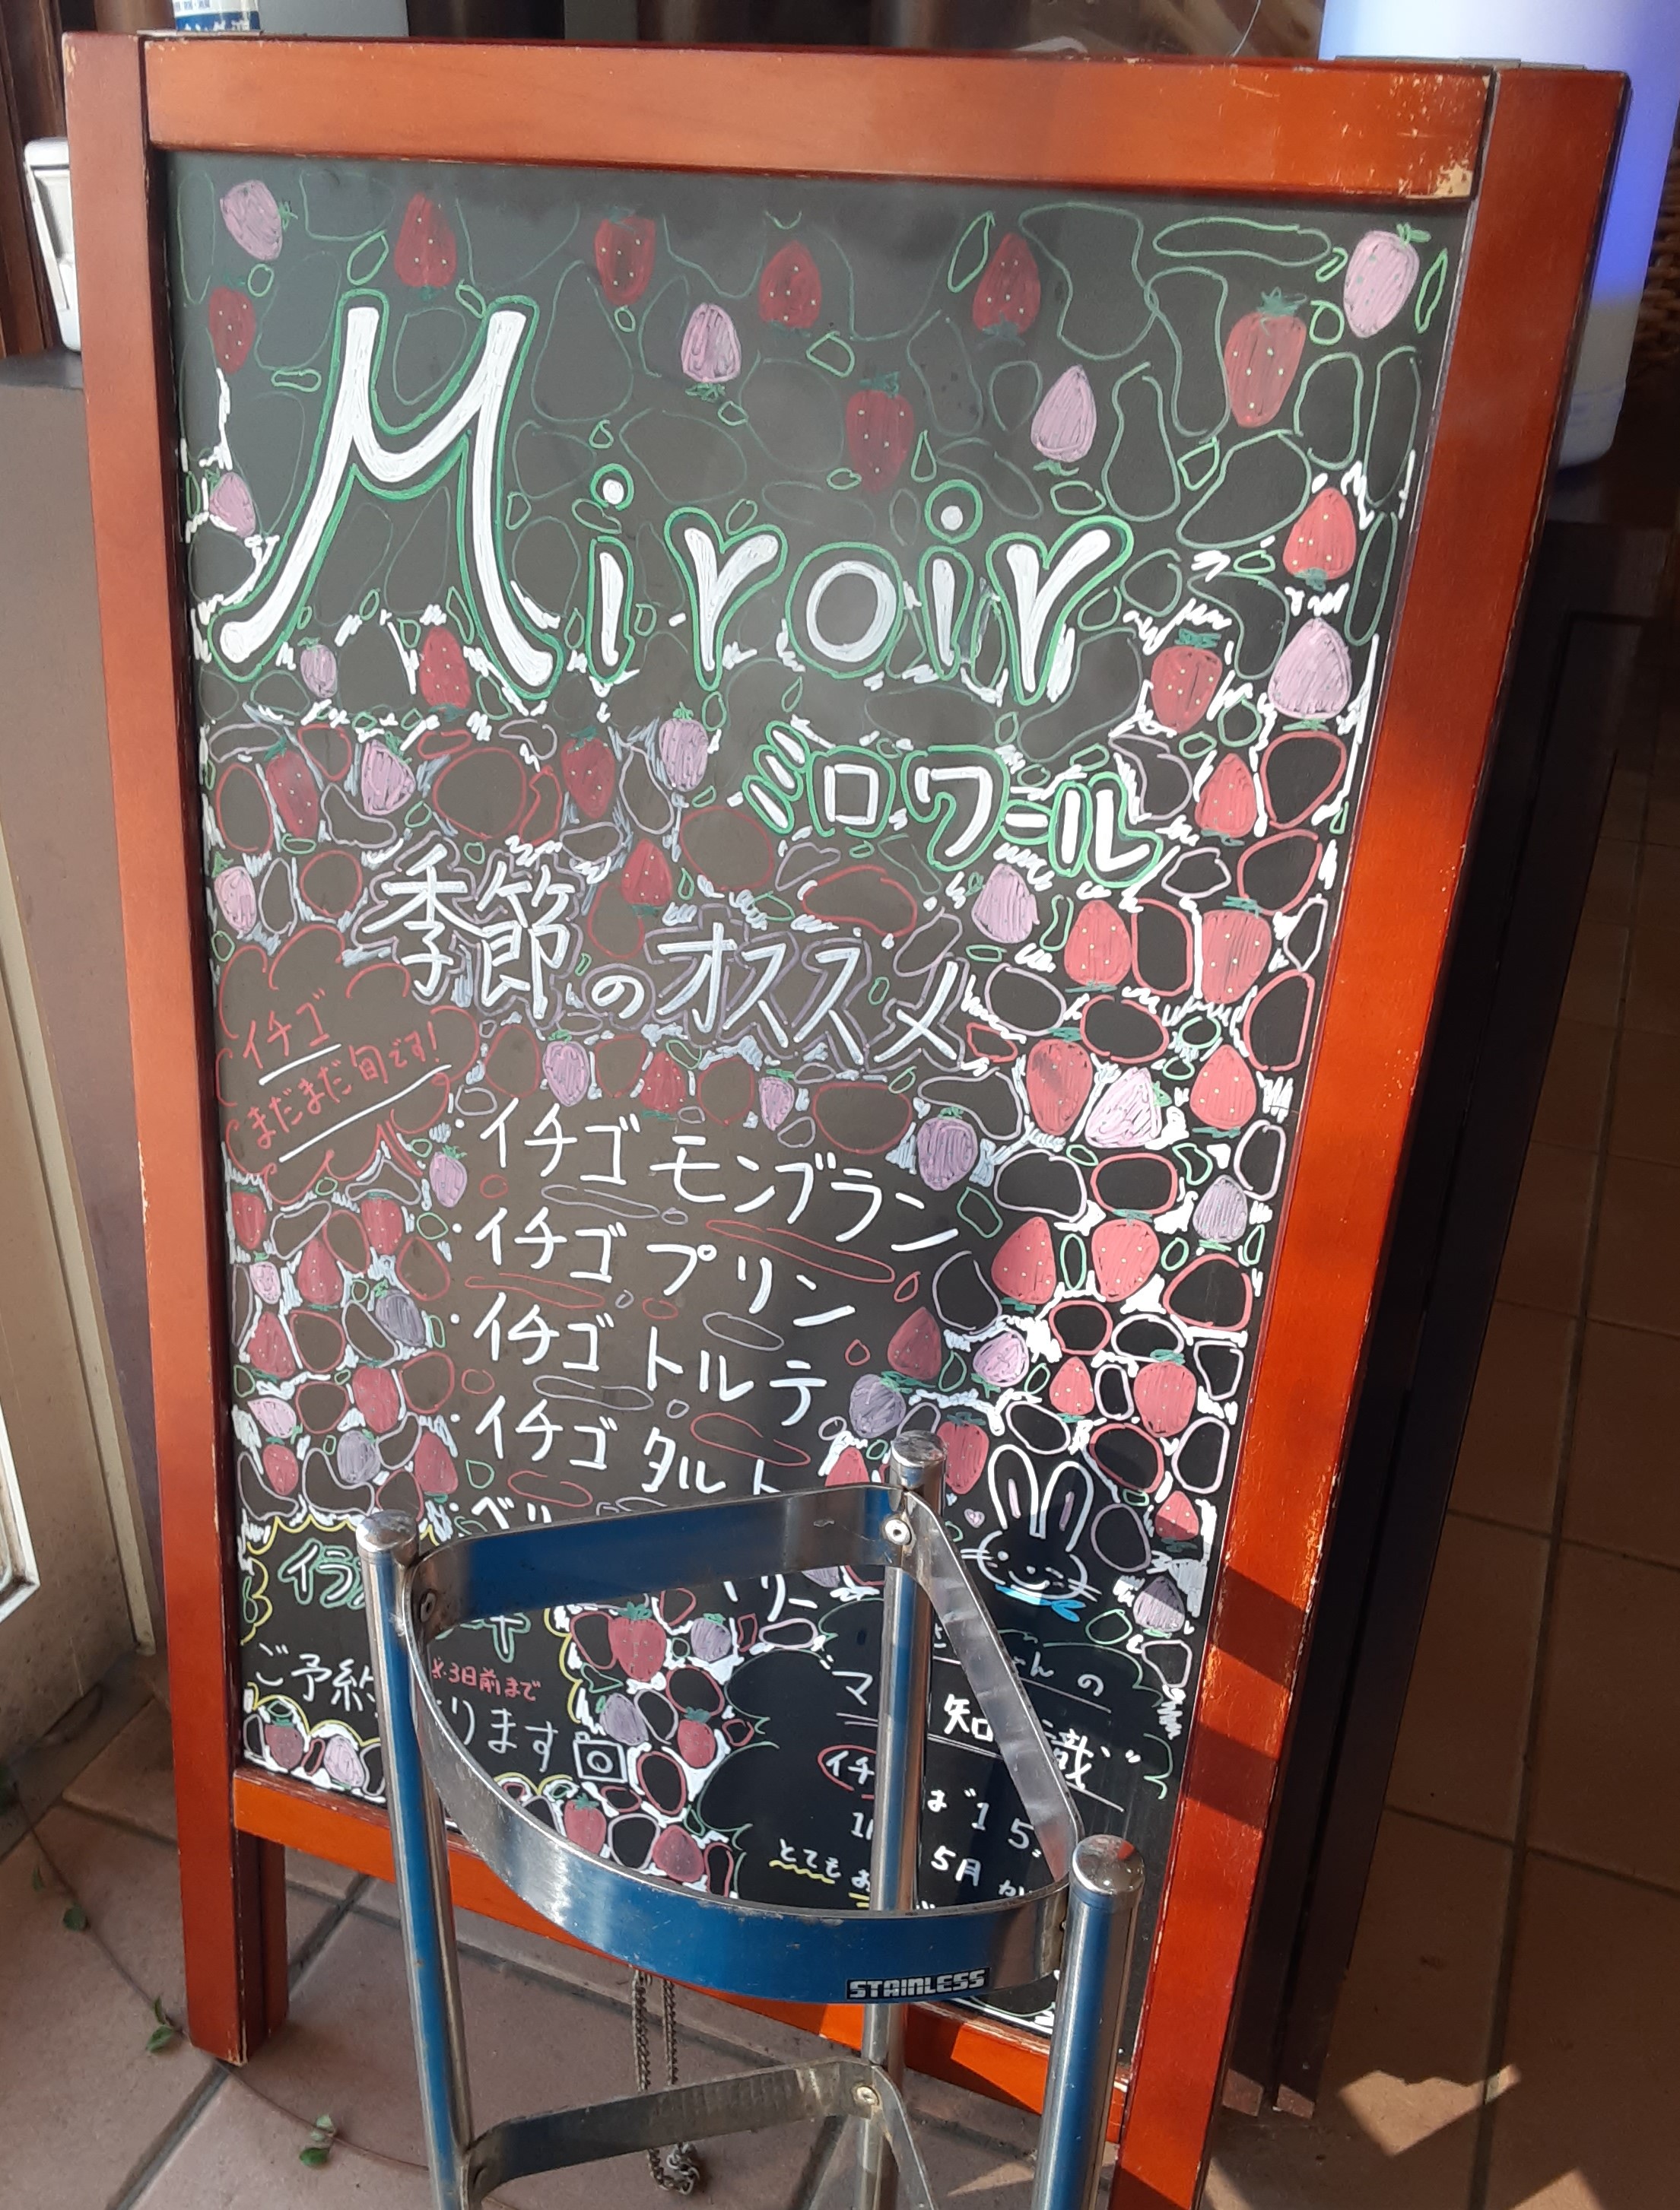 Miroir
ミロワール
季節のオススメ
イチゴ
まだまだ旬です!
・イチゴモンブラン
・イチゴプリン
・イチゴトルテ
・イチゴタルト
ご予約
※3日前まで
ります
の
知
識
5月
とても
STAINLESS